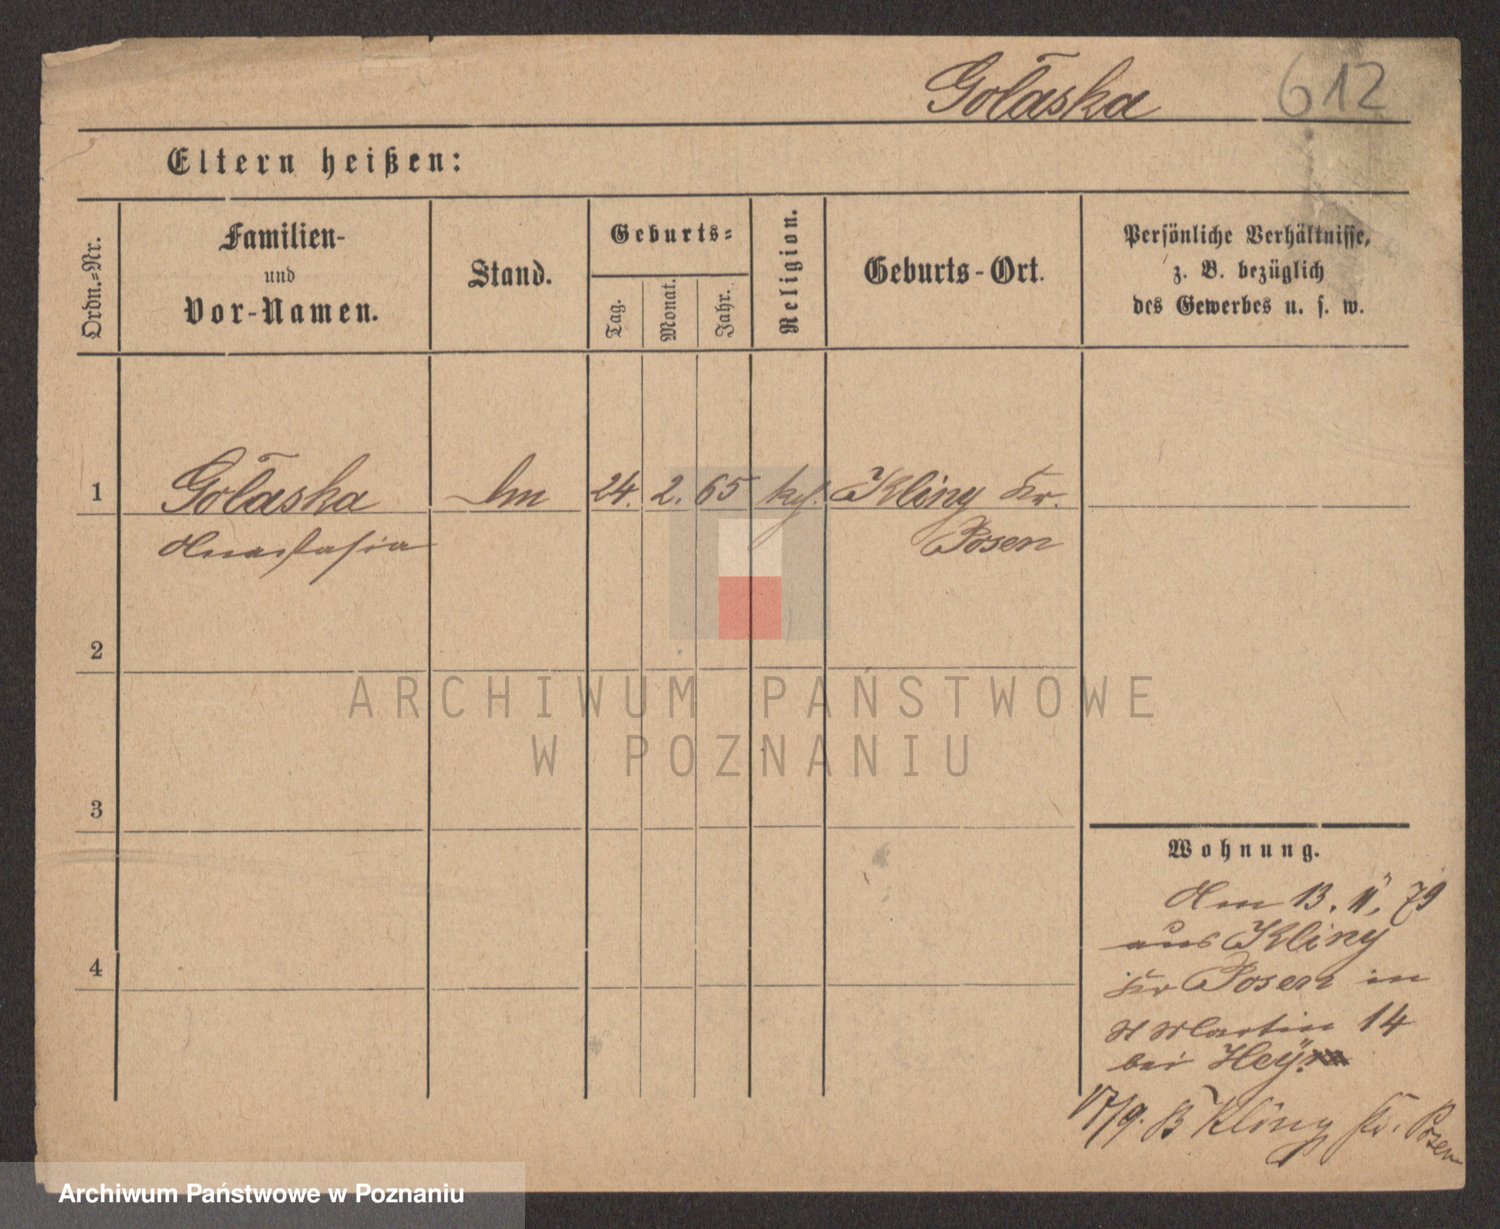 Golaska 612
Eltern heißen:
Ordn.-Nr.
Familien-
und
Vor-Namen.
Stand.
Geburts-
Tag.
Monat.
Jahr.
Religion.
Geburts-Ort.
Persönliche Verhältnisse,
z. B. bezüglich
des Gewerbes u. s. w.
1 Golaska 24. 2. 65 Kliny Kr.
Anastasia Posen
2
ARCHIWUM PAŃSTWOWE
W POZNANIU
3
4
Wohnung.
Am 13. 11. 79
aus Kliny
Kr Posen in
St Martin 14
bei
17/9. Kliny Kr. Posen
Archiwum Państwowe w Poznaniu